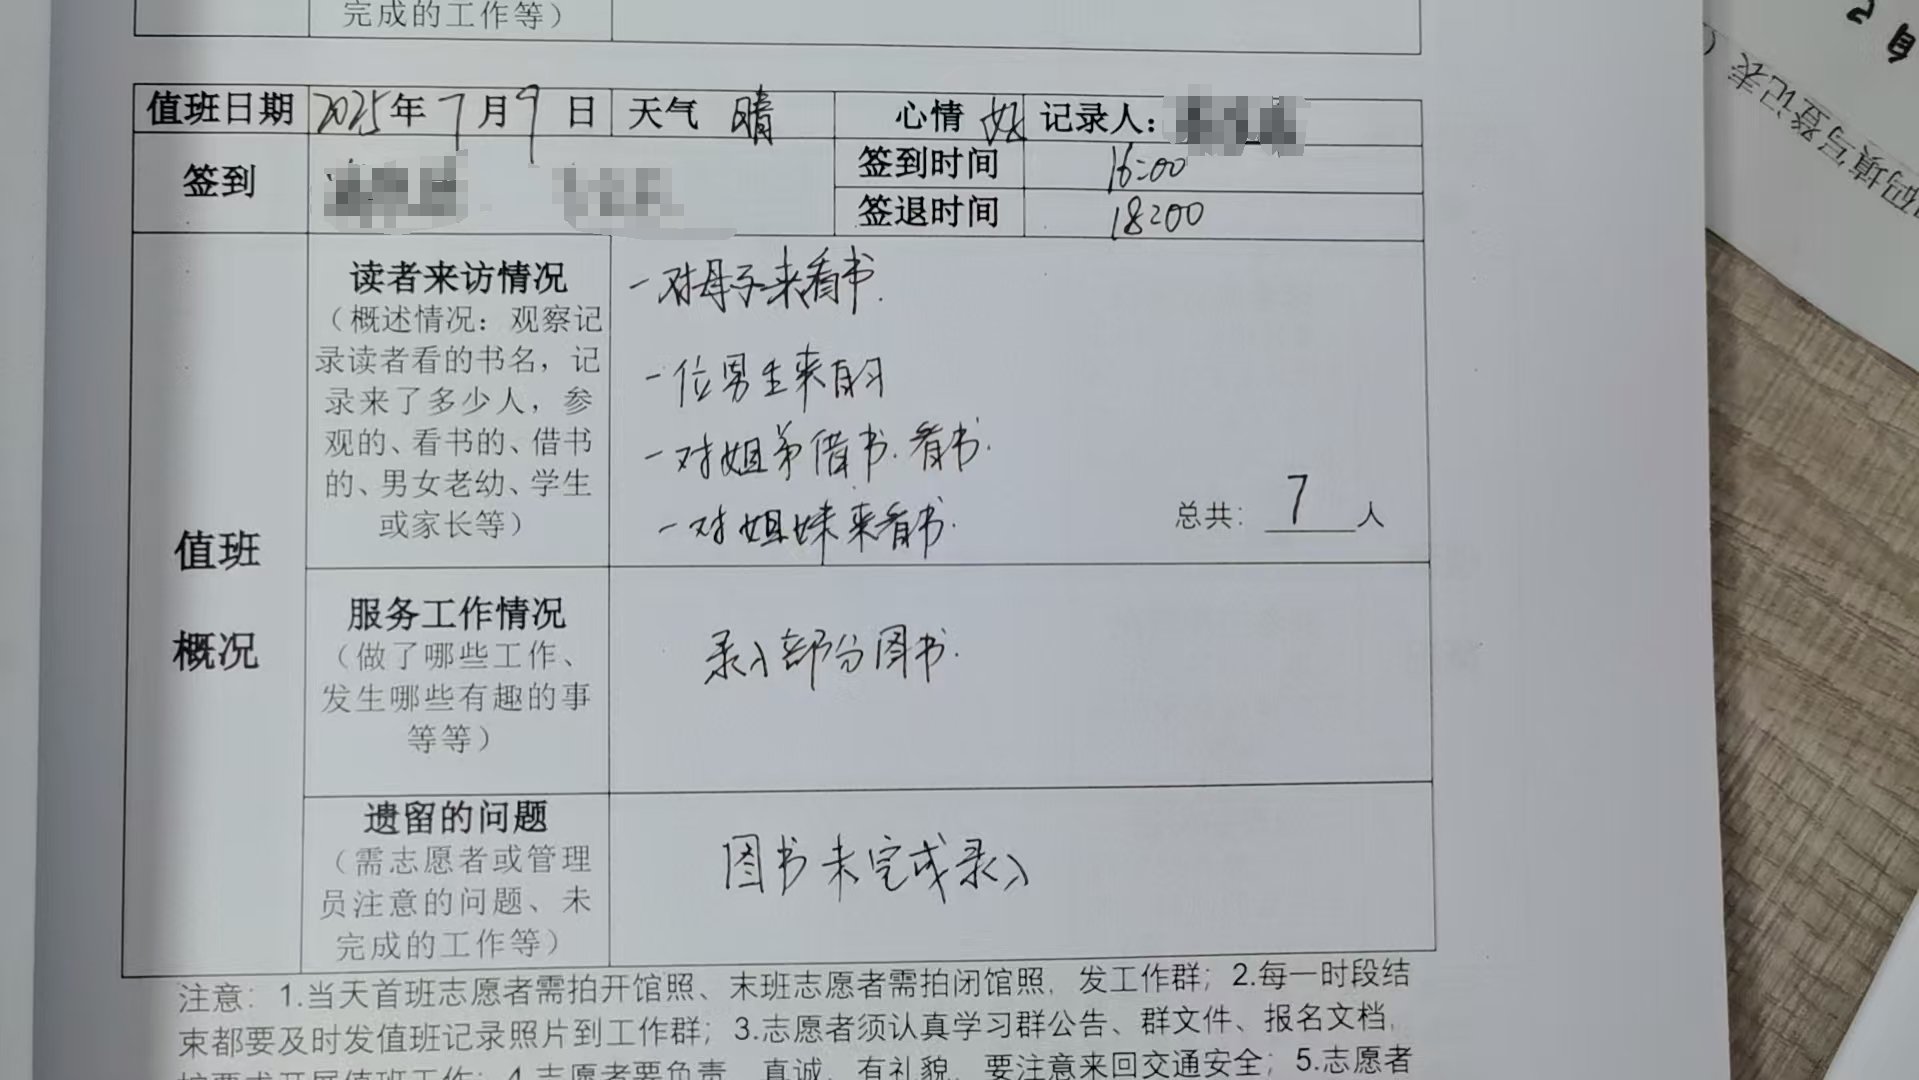 完成的工作等）
值班日期 2025年7月9日 天气 晴 心情 好 记录人：
签到
签到时间 16:00
签退时间 18:00
值班
概况
读者来访情况
（概述情况：观察记
录读者看的书名，记
录来了多少人，参
观的、看书的、借书
的、男女老幼、学生
或家长等）
一对母子来看书.
一位男生来自习
一对姐弟借书.看书.
一对姐妹来看书.
总共：7人
服务工作情况
（做了哪些工作、
发生哪些有趣的事
等等）
录入部分图书.
遗留的问题
（需志愿者或管理
员注意的问题、未
完成的工作等）
图书未完成录入
注意：1.当天首班志愿者需拍开馆照、末班志愿者需拍闭馆照，发工作群；2.每一时段结
束都要及时发值班记录照片到工作群；3.志愿者须认真学习群公告、群文件、报名文档，
按要求开展值班工作；4.志愿者要负责、真诚、有礼貌，要注意来回交通安全；5.志愿者
码填写登记表（